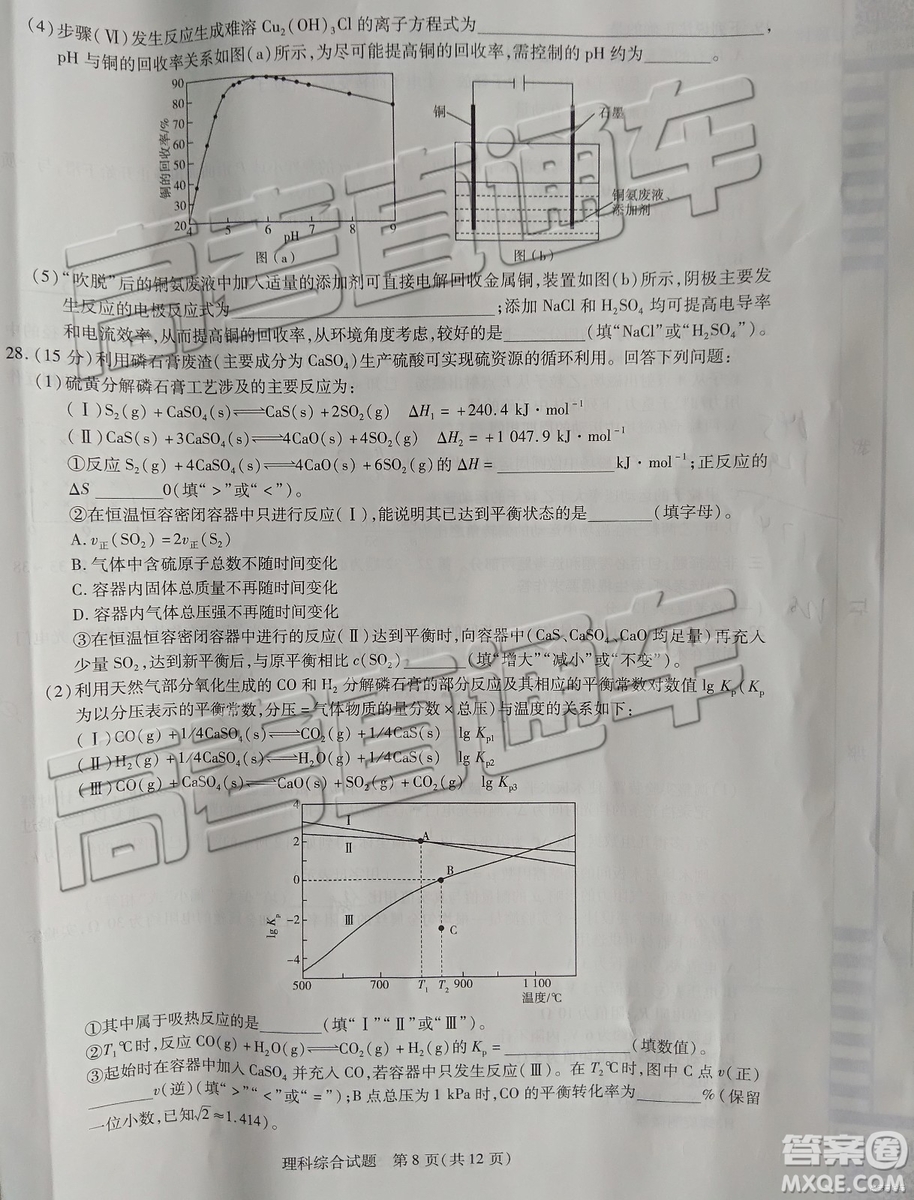 (4)步骤(Ⅵ)发生反应生成难溶 Cu₂(OH)₃Cl 的离子方程式为____________________,
pH 与铜的回收率关系如图(a)所示,为尽可能提高铜的回收率,需控制的 pH 约为________。
铜的回收率/%
90
80
70
60
50
40
30
20
4 5 6 7 8 9
pH
图(a)
铜
石墨
铜氨废液、
添加剂
图(b)
(5)“吹脱”后的铜氨废液中加入适量的添加剂可直接电解回收金属铜,装置如图(b)所示,阴极主要发
生反应的电极反应式为____________________;添加 NaCl 和 H₂SO₄ 均可提高电导率
和电流效率,从而提高铜的回收率,从环境角度考虑,较好的是________(填“NaCl”或“H₂SO₄”)。
28.(15 分)利用磷石膏废渣(主要成分为 CaSO₄)生产硫酸可实现硫资源的循环利用。回答下列问题:
(1)硫黄分解磷石膏工艺涉及的主要反应为:
(Ⅰ)S₂(g)+CaSO₄(s)⇌CaS(s)+2SO₂(g) ΔH₁=+240.4 kJ·mol⁻¹
(Ⅱ)CaS(s)+3CaSO₄(s)⇌4CaO(s)+4SO₂(g) ΔH₂=+1 047.9 kJ·mol⁻¹
①反应 S₂(g)+4CaSO₄(s)⇌4CaO(s)+6SO₂(g)的 ΔH=____________kJ·mol⁻¹;正反应的
ΔS ________0(填“>”或“<”)。
②在恒温恒容密闭容器中只进行反应(Ⅰ),能说明其已达到平衡状态的是________(填字母)。
A. v正(SO₂)=2v正(S₂)
B. 气体中含硫原子总数不随时间变化
C. 容器内固体总质量不再随时间变化
D. 容器内气体总压强不再随时间变化
③在恒温恒容密闭容器中进行的反应(Ⅱ)达到平衡时,向容器中(CaS、CaSO₄、CaO 均足量)再充入
少量 SO₂,达到新平衡后,与原平衡相比 c(SO₂)________(填“增大”“减小”或“不变”)。
(2)利用天然气部分氧化生成的 CO 和 H₂ 分解磷石膏的部分反应及其相应的平衡常数对数值 lg Kp(Kp
为以分压表示的平衡常数,分压=气体物质的量分数×总压)与温度的关系如下:
(Ⅰ)CO(g)+1/4CaSO₄(s)⇌CO₂(g)+1/4CaS(s) lg Kp1
(Ⅱ)H₂(g)+1/4CaSO₄(s)⇌H₂O(g)+1/4CaS(s) lg Kp2
(Ⅲ)CO(g)+CaSO₄(s)⇌CaO(s)+SO₂(g)+CO₂(g) lg Kp3
lg Kp
4
2
0
-2
-4
Ⅰ
Ⅱ
Ⅲ
A
B
C
500 700 T₁ T₂ 900 1 100
温度/℃
①其中属于吸热反应的是________(填“Ⅰ”“Ⅱ”或“Ⅲ”)。
②T₁℃时,反应 CO(g)+H₂O(g)⇌CO₂(g)+H₂(g)的 Kp=____________(填数值)。
③起始时在容器中加入 CaSO₄ 并充入 CO,若容器中只发生反应(Ⅲ)。在 T₂℃时,图中 C 点 v(正)
________v(逆)(填“>”“<”或“=”);B 点总压为 1 kPa 时,CO 的平衡转化率为________%(保留
一位小数,已知√2≈1.414)。
理科综合试题 第 8 页(共 12 页)
高考直通车
高考直通车
高考直通车
答案圈
MXQE.COM